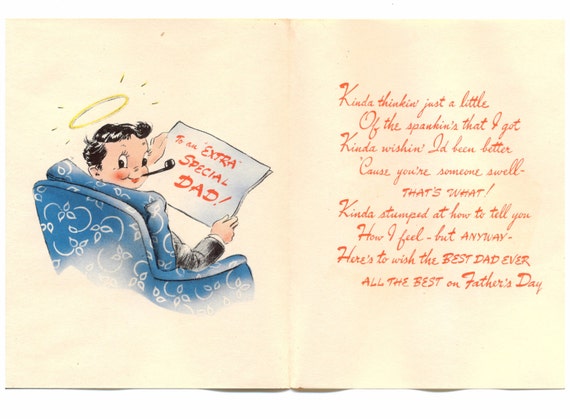 To an "EXTRA"
SPECIAL
DAD!
Kinda thinkin' just a little
Of the spankin's that I got
Kinda wishin' I'd been better
'Cause you're someone swell-
THAT'S WHAT!
Kinda stumped at how to tell you
How I feel - but ANYWAY-
Here's to wish the BEST DAD EVER
ALL THE BEST on Father's Day